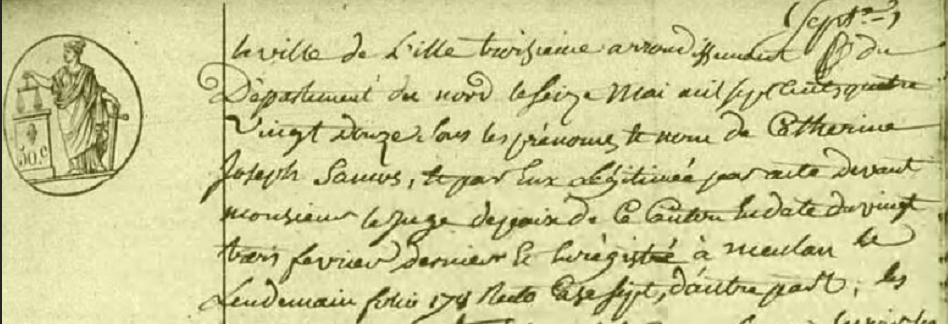 (Sept.re)
la ville de Lille troisieme arrondissement du
Département du nord le seize Mai mil sept cent quatre
Vingt douze. Sous les prénoms et nom de Catherine
Joseph Samos, et par eux légitimée par acte devant
monsieur le juge de paix de Ce Canton En date du vingt
trois fevrier dernier et Enrégistré à meulan le
Lendemain folio 178 Recto Case Sept, d'autre part; les
50.c